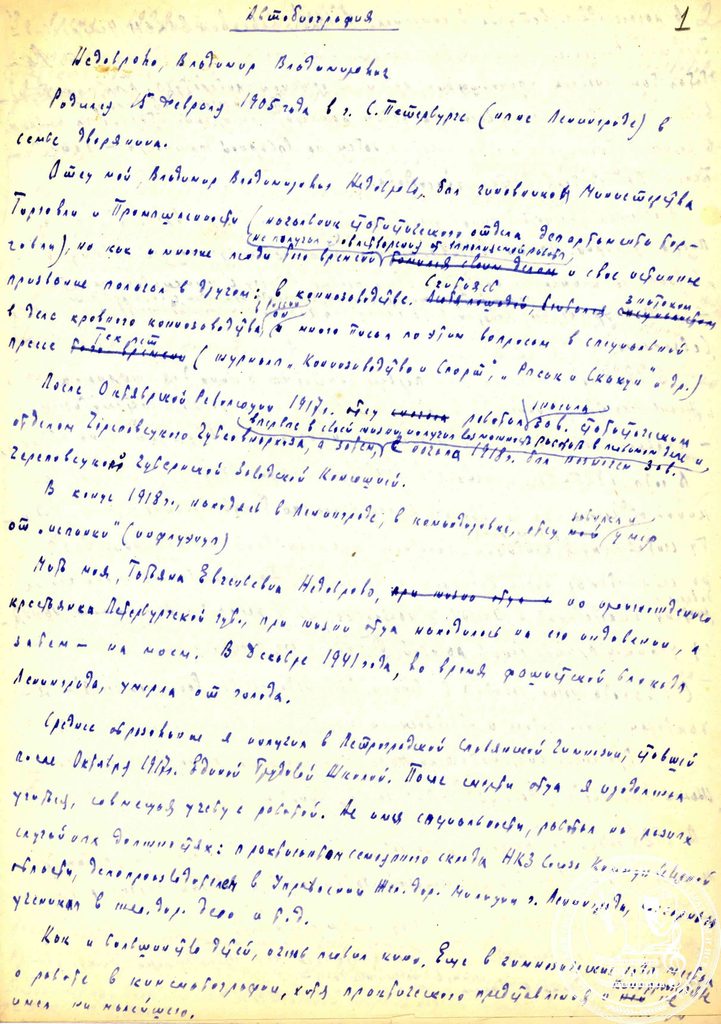 Автобиография
1
Недоброво, Владимир Владимирович
Родился 15 февраля 1905 года в г. С. Петербурге (ныне Ленинграде) в
семье дворянина.
Отец мой, Владимир Владимирович Недоброво, был чиновником Министерства
Торговли и Промышленности (начальник статистического отдела департамента Тор-
не получал удовлетворения от выполняемой работы,
говли), но как и многие люди того времени своим делом и свое истинное
Считался
призвание полагал в другом: в коннозаводстве. знатоком
в России
в деле кровного коннозаводства, он много писал по этим вопросам в специальной
тех лет
прессе того времени (журнал „Коннозаводство и Спорт", „Рысак и Скакун" и др.)
сначала
После Октябрьской Революции 1917 г. отец работал зав. статистическим
впервые в своей жизни получил возможность работать в любимом деле и,
отделом Череповецкого Губсовнархоза, а затем, с начала 1918 г. был назначен зав.
Череповецкой Губернской Заводской Конюшней.
заболел и
В конце 1918 г., находясь в Ленинграде, в командировке, отец мой умер
от „испанки" (инфлуэнца)
Мать моя, Татьяна Евгеньевна Недоброво, при жизни отца по происхождению
крестьянка Петербургской губ., при жизни отца находилась на его иждивении, а
затем — на моем. В декабре 1941 года, во время фашистской блокады
Ленинграда, умерла от голода.
Среднее образование я получил в Петроградской Славянской Гимназии, ставшей
после Октября 1917 г. Единой Трудовой Школой. После смерти отца я продолжал
учиться, совмещая учебу с работой. Не имея специальности, работал на разных
случайных должностях: практикантом семенного склада НКЗ Союза Коммун Северной
области, делопроизводителем в Управлении Жел. дор. милиции г. Ленинграда,
учеником в жел. дор. депо и т.д.
Как и большинство детей, очень любил кино. Еще в гимназические годы мечтал
о работе в кинематографии, хотя практического представления о ней не
имел ни малейшего.